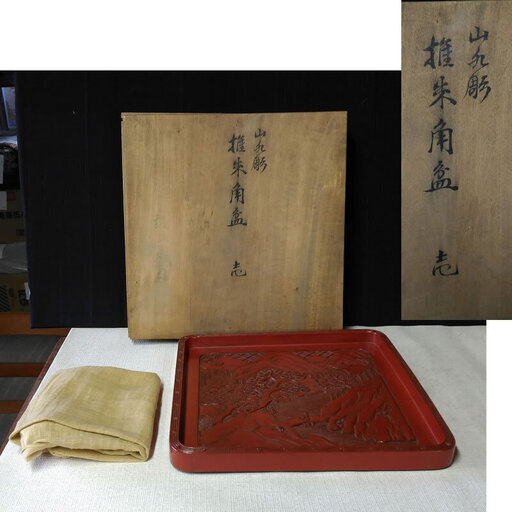 山水彫
推朱角盆 壱
山水彫
推朱角盆 壱